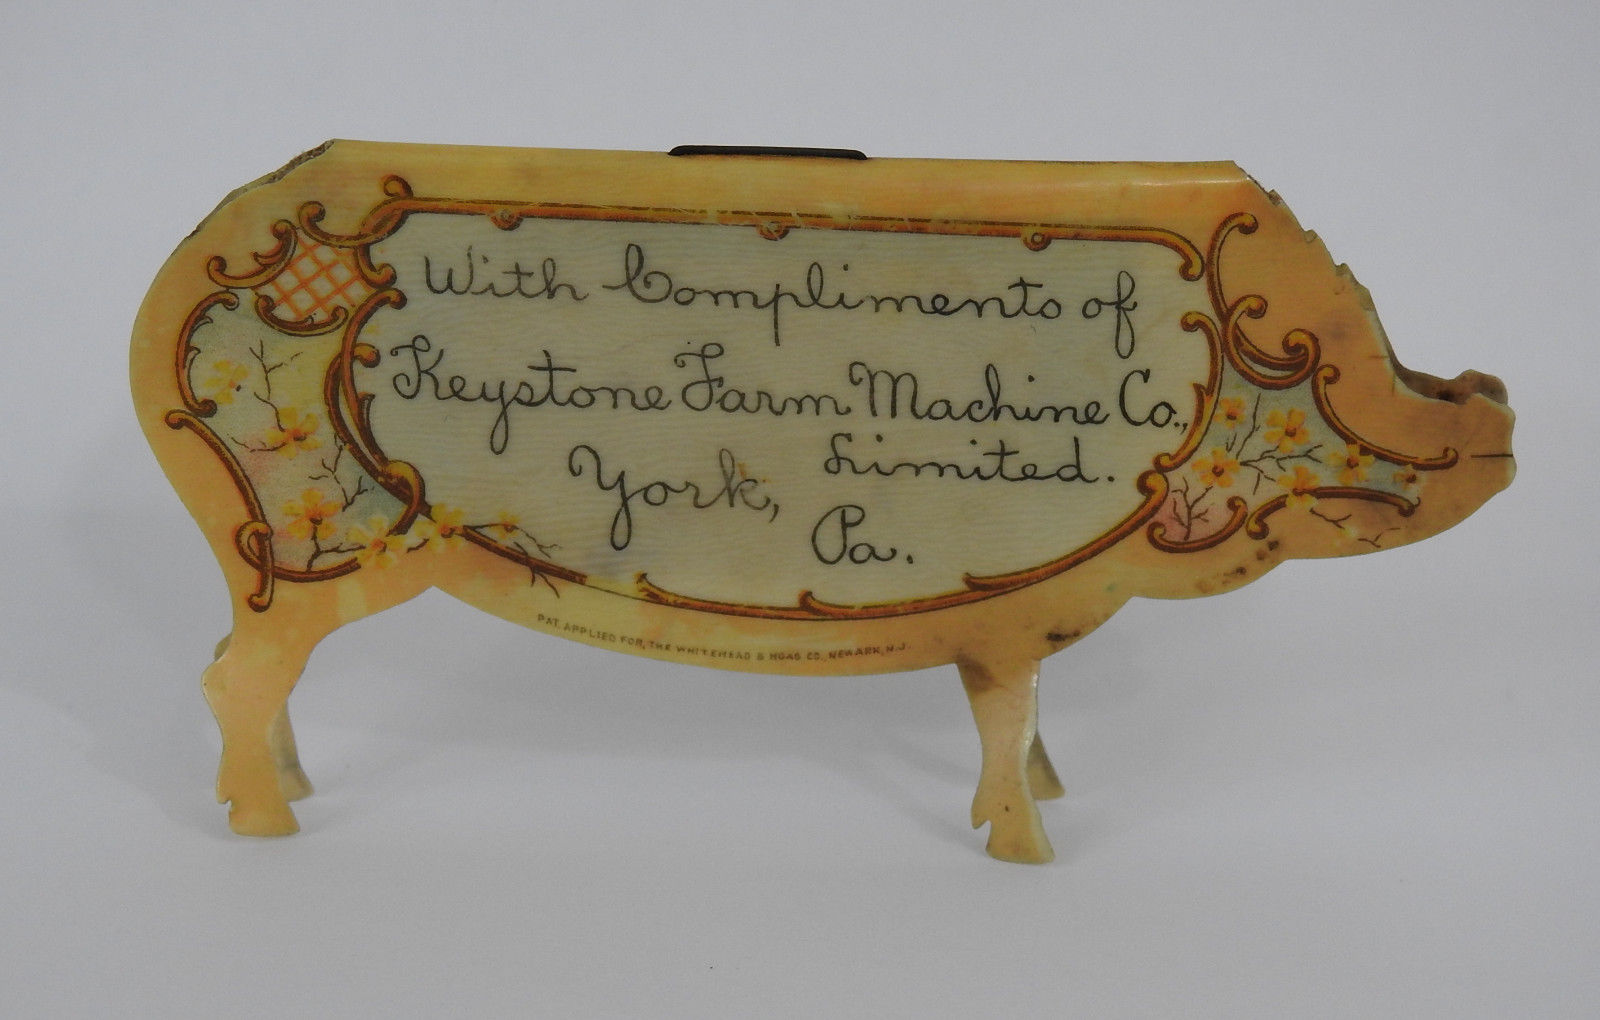 With Compliments of
Keystone Farm Machine Co.,
Limited.
York,
Pa.
PAT. APPLIED FOR, THE WHITEHEAD & HOAG CO., NEWARK, N.J.